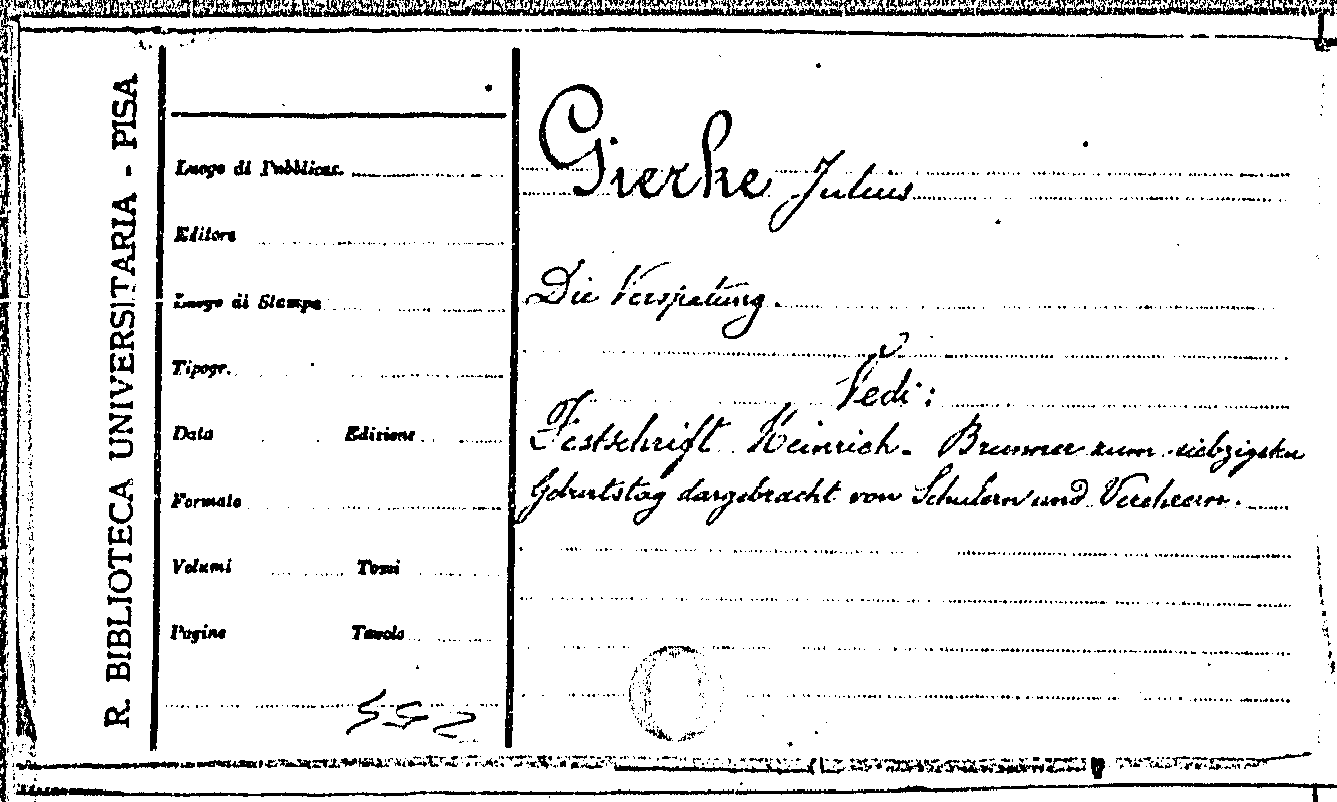 R. BIBLIOTECA UNIVERSITARIA - PISA
Luogo di Pubblicaz.
Editore
Luogo di Stampa
Tipogr.
Data Edizione
Formato
Volumi Tomi
Pagine Tavole
Gierke Julius
Die Verspätung.
Vedi:
Festschrift Heinrich. Brunner zum siebzigsten
Geburtstag dargebracht von Schulern und Verehrern.